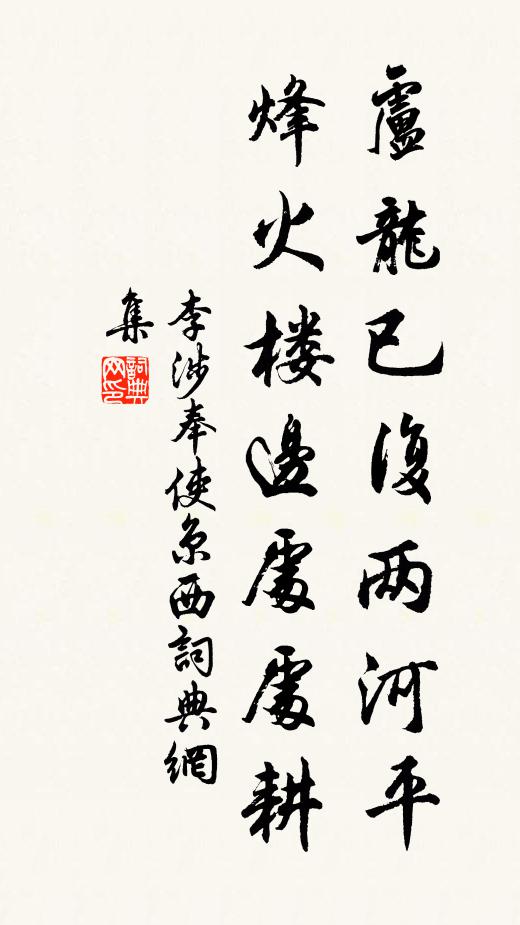 盧龍已復兩河平
烽火楼邊處處耕
李涉奉使京西詞典網
集
詞典
网印